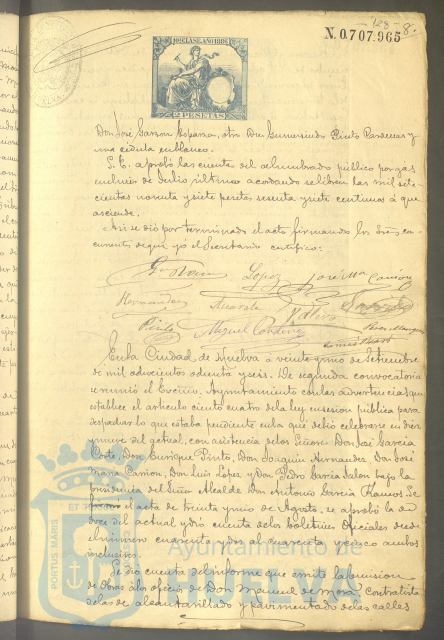 128-8.
N.0.707.965
10ª CLASE. AÑO 1886
2 PESETAS
Don José Garzon Espana, otro Don Gumersindo Pinto
una cédula en blanco.
S. E. aprobó las cuentas del alumbrado público por gas
en el mes de Julio último acordando se libren las mil sete-
cientas noventa y siete pesetas sesenta y siete centimos á que
asciende.
Asi se dió por terminado el acto firmando los Sres. con-
currentes de que yo el Secretario certifico:
Lopez
José Mª Carrion
Hernandez
Pinto
Miguel
En la Ciudad de Huelva á veinte y uno de Setiembre
de mil ochocientos ochenta y seis. De segunda convocatoria
se reunió el Excmo. Ayuntamiento con las advertencias que
establece el articulo ciento cuatro de la ley en sesion pública para
despachar lo que estaba pendiente en la que debió celebrarse en diez
y nueve del actual, con asistencia de los Señores Don José Garcia
Don Enrique Pinto, Don Joaquin Hernandez, Don José
Maria Carrion, Don Luis Lopez y Don Pedro Garcia Jalon bajo la
presidencia del Señor Alcalde Don Antonio Garcia Ramos. Se
el acta de treinta y uno de Agosto, se aprobó la de
doce del actual y dió cuenta de los Boletines Oficiales desde
el número cuarenta y dos al cuarenta y cinco ambos
inclusive.
Se dió cuenta del informe que emite la Comision
de Obras á los oficios de Don Manuel de Mora Contratista
de las de alcantarillado y pavimentado de las calles
PORTUS MARIS
ET
Ayuntamiento de
HUELVA